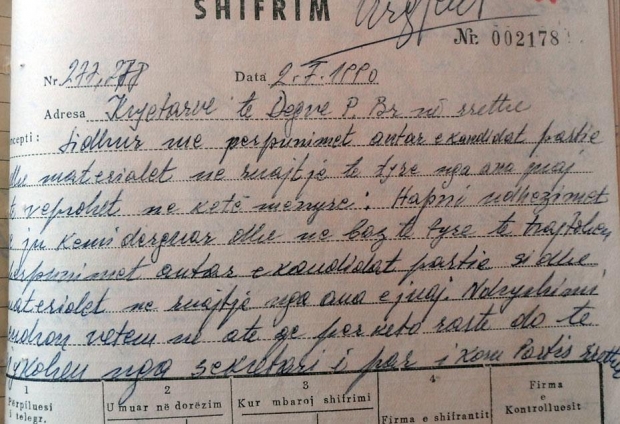 SHIFRIM Urgjent
Nr. 002178
Nr. 277, 278 Data 2.7.1990
Adresa Kryetarve te Degve P. Br në rrethe
cepti: Lidhur me perpunimet antar e kandidat partie
dhe materialet ne ruajtje te tyre nga ana juaj
të veprohet ne kete menyre: Hapni udhezimet
q ju kemi derguar dhe ne baz te tyre te trajtohen
perpunimet antar e kandidat partie si dhe
materialet ne ruajtje nga ana e juaj Ndryshimi
qendron vetem ne ate qe per keto raste do te
nga sekretari i par i Kom Partis rrethi
1 2 3 4 Firma
Përpiluesi Umuar në dorëzim Kur mbaroj shifrimi Firma e shifrantit e
i telegr. Kontrolluesit